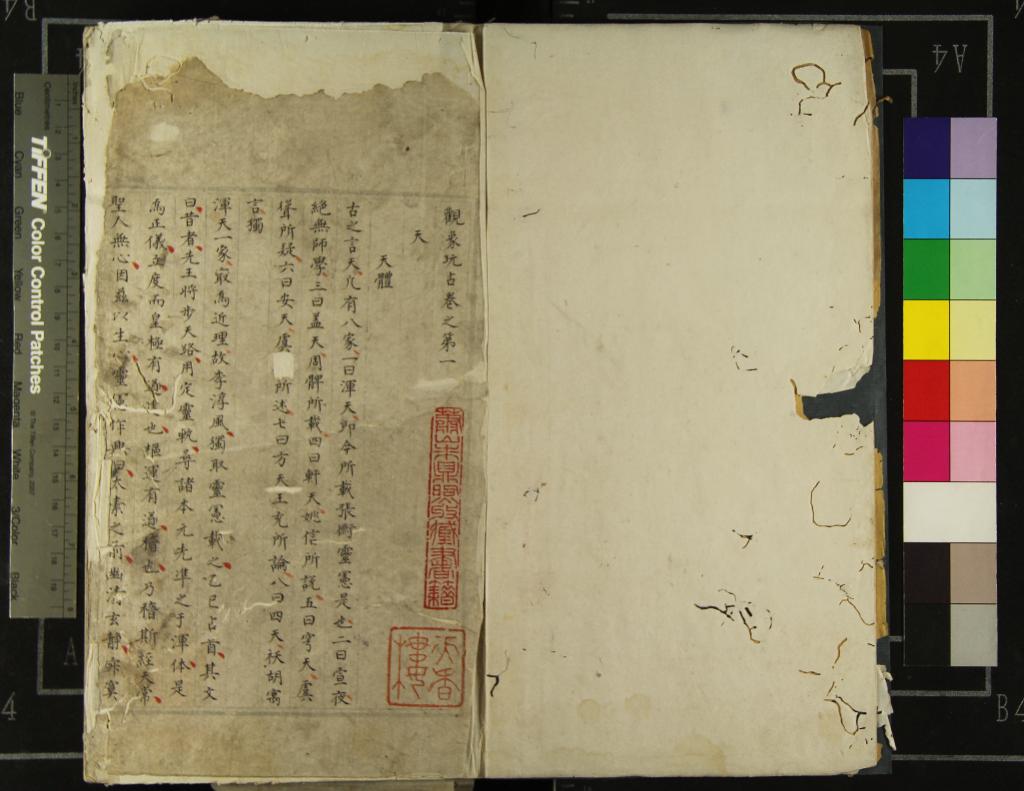 觀象玩占卷之第一
天
天體
古之言天凢有八家一曰渾天即今所載張衡靈憲是也二曰宣夜
絕無師學三曰盖天周髀所載四曰軒天姚信所説五曰穹天虞
聳所疑六曰安天虞 所述七曰方天王充所論八曰四天祅胡寓
言獨
渾天一家㝡爲近理故李淳風獨取靈憲載之乙巳占首其文
曰昔者先王將步天路用定靈軌尋諸本元先凖之于渾体是
爲正儀立度而皇極有逌建也樞運有逌稽也乃稽斯經天常
聖人無心因茲以生心靈憲作興曰太素之前幽清玄靜寂寞
天香樓
TIFFEN Color Control Patches
© The Tiffen Company, 2007
Inches
Centimetres
Blue Cyan Green Yellow Red Magenta White 3/Color Black
A4
B4
A
4
B4